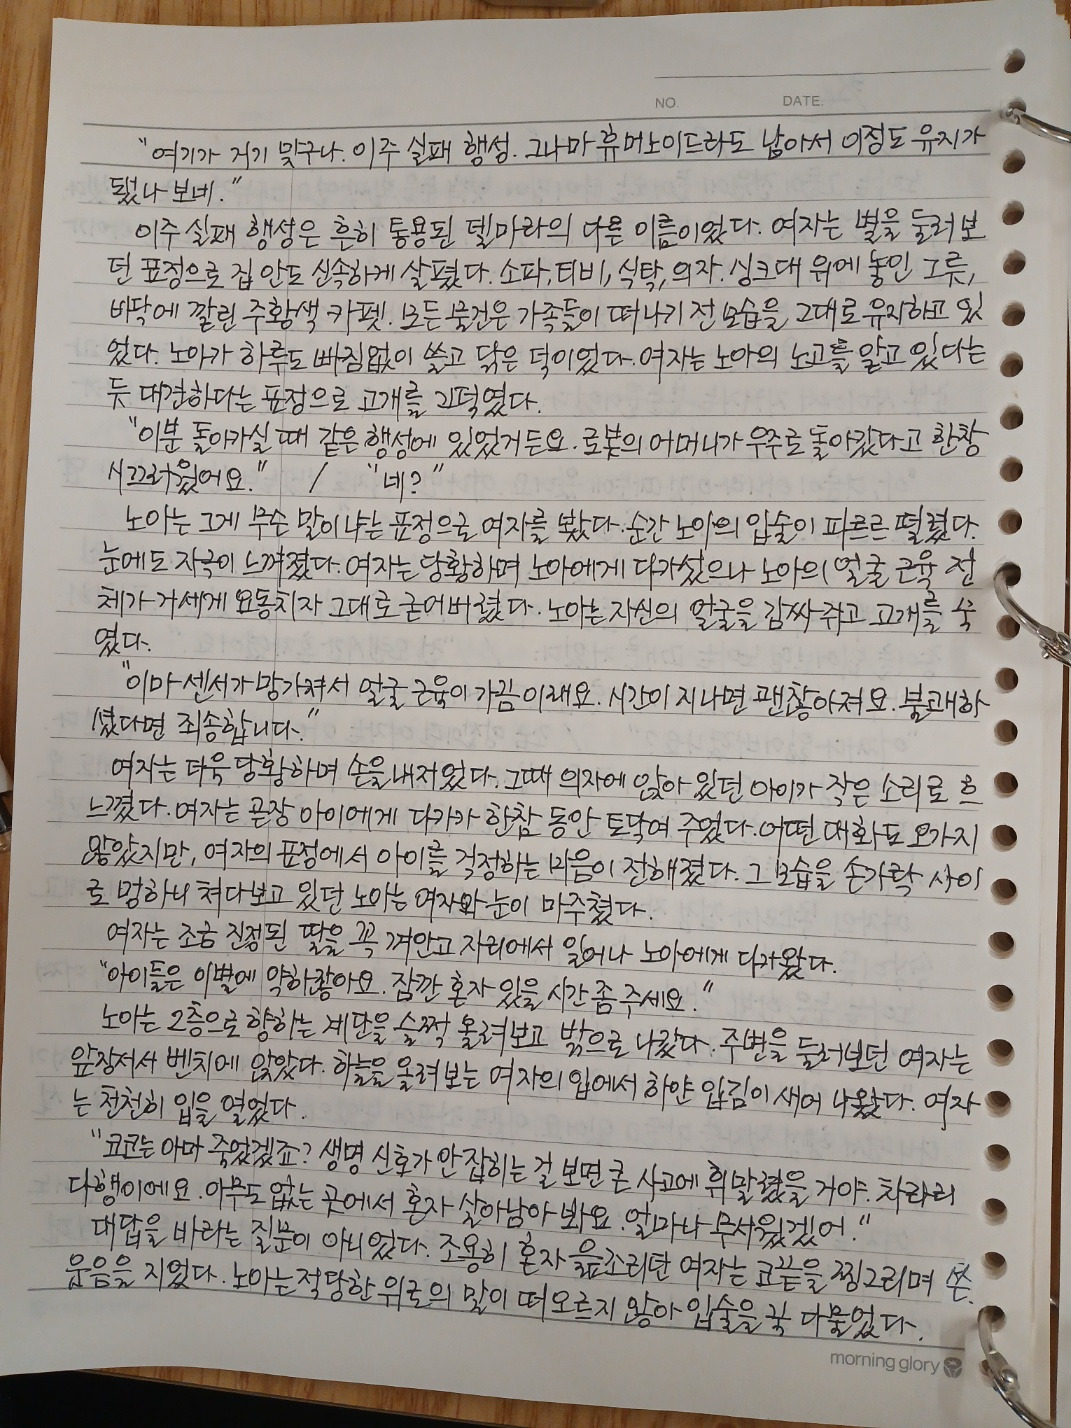 NO. DATE.
"여기가 거기 맞구나. 이주 실패 행성. 그나마 휴머노이드라도 남아서 이정도 유지가
됐나 보네."
이주 실패 행성은 흔히 통용된 텔마라의 다른 이름이었다. 여자는 별을 둘러보
던 표정으로 집 안도 신속하게 살폈다. 소파, 티비, 식탁, 의자. 싱크대 위에 놓인 그릇,
바닥에 깔린 주황색 카펫. 모든 물건은 가족들이 떠나기 전 모습을 그대로 유지하고 있
었다. 노아가 하루도 빠짐없이 쓸고 닦은 덕이었다. 여자는 노아의 노고를 알고 있다는
듯 대견하다는 표정으로 고개를 끄덕였다.
"이분 돌아가실 때 같은 행성에 있었거든요. 로봇의 어머니가 우주로 돌아갔다고 한창
시끄러웠어요." / "네?"
노아는 그게 무슨 말이냐는 표정으로 여자를 봤다. 순간 노아의 입술이 파르르 떨렸다.
눈에도 자극이 느껴졌다. 여자는 당황하며 노아에게 다가섰으나 노아의 얼굴 근육 전
체가 거세게 요동치자 그대로 굳어버렸다. 노아는 자신의 얼굴을 감싸 쥐고 고개를 숙
였다.
"이마 센서가 망가져서 얼굴 근육이 가끔 이래요. 시간이 지나면 괜찮아져요. 불쾌하
셨다면 죄송합니다."
여자는 더욱 당황하며 손을 내저었다. 그때 의자에 앉아 있던 아이가 작은 소리로 흐
느꼈다. 여자는 곧장 아이에게 다가가 한참 동안 토닥여 주었다. 어떤 대화도 오가지
않았지만, 여자의 표정에서 아이를 걱정하는 마음이 전해졌다. 그 모습을 손가락 사이
로 멍하니 쳐다보고 있던 노아는 여자와 눈이 마주쳤다.
여자는 조금 진정된 딸을 꼭 껴안고 자리에서 일어나 노아에게 다가왔다.
"아이들은 이별에 약하잖아요. 잠깐 혼자 있을 시간 좀 주세요."
노아는 2층으로 향하는 계단을 슬쩍 올려보고 밖으로 나갔다. 주변을 둘러보던 여자는
앞장서서 벤치에 앉았다. 하늘을 올려보는 여자의 입에서 하얀 입김이 새어 나왔다. 여자
는 천천히 입을 열었다.
"코코는 아마 죽었겠죠? 생명 신호가 안 잡히는 걸 보면 큰 사고에 휘말렸을 거야. 차라리
다행이에요. 아무도 없는 곳에서 혼자 살아남아 봐요. 얼마나 무서웠겠어."
대답을 바라는 질문이 아니었다. 조용히 혼자 읊조리던 여자는 코끝을 찡그리며 쓴
웃음을 지었다. 노아는 적당한 위로의 말이 떠오르지 않아 입술을 꾹 다물었다.
morning glory